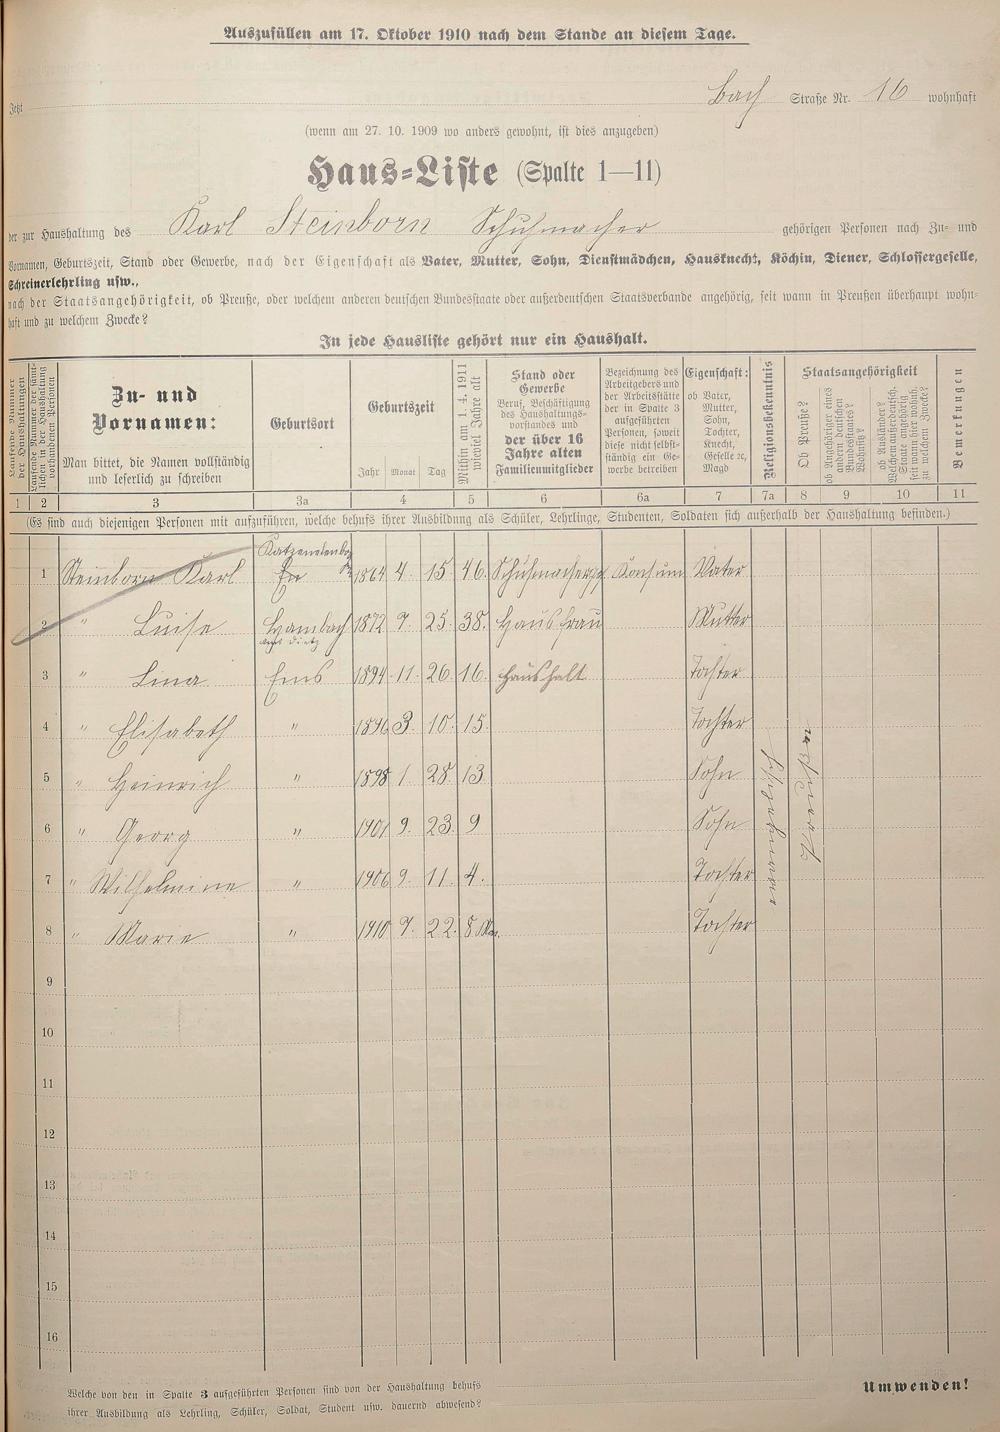 Auszufüllen am 17. Oktober 1910 nach dem Stande an diesem Tage.
Jetzt Bach Straße Nr. 16 wohnhaft
(wenn am 27. 10. 1909 wo anders gewohnt, ist dies anzugeben)
Haus=Liste (Spalte 1—11)
der zur Haushaltung des Karl Steinborn Schuhmacher gehörigen Personen nach Zu- und
Vornamen, Geburtszeit, Stand oder Gewerbe, nach der Eigenschaft als Vater, Mutter, Sohn, Dienstmädchen, Hausknecht, Köchin, Diener, Schlossergeselle,
Schreinerlehrling usw.,
nach der Staatsangehörigkeit, ob Preuße, oder welchem anderen deutschen Bundesstaate oder außerdeutschen Staatsverbande angehörig, seit wann in Preußen überhaupt wohn-
haft und zu welchem Zwecke?
In jede Hausliste gehört nur ein Haushalt.
Laufende Nummer der Haushaltungen
Laufende Nummer der sämt-
lichen in der Haushaltung
vorhandenen Personen
Zu- und
Vornamen:
Man bittet, die Namen vollständig
und leserlich zu schreiben
Geburtsort
Geburtszeit
Jahr Monat Tag
Mithin am 1. 4. 1911
wieviel Jahre alt
Stand oder
Gewerbe
Beruf, Beschäftigung
des Haushaltungs-
vorstandes und
der über 16
Jahre alten
Familienmitglieder
Bezeichnung des
Arbeitgebers und
der Arbeitsstätte
der in Spalte 3
aufgeführten
Personen, soweit
diese nicht selbst-
ständig ein Ge-
werbe betreiben
Eigenschaft:
ob Vater,
Mutter,
Sohn,
Tochter,
Knecht,
Geselle ꝛc,
Magd
Religionsbekenntnis
Staatsangehörigkeit
Ob Preuße?
ob Angehöriger eines
andern deutschen
Bundesstaates?
Wohnsitz?
ob Ausländer?
Welchem außerdeutsch.
Staate angehörig
seit wann hier wohnh.
zu welchem Zwecke?
Bemerkungen
1 2 3 3a 4 5 6 6a 7 7a 8 9 10 11
(Es sind auch diejenigen Personen mit aufzuführen, welche behufs ihrer Ausbildung als Schüler, Lehrlinge, Studenten, Soldaten sich außerhalb der Haushaltung befinden.)
1 Steinborn Karl 1864 4. 15 46. Konsum Vater
2 " Luise Hambach 1872 7. 25. 38. Hausfrau Mutter
3 " Lina Ems 1894 11. 26. 16. Haushalt Tochter
4 " Elisabeth " 1896 3. 10. 15. Tochter
5 " Heinrich " 1898 1. 28. 13 Sohn
6 " Georg " 1901 9. 23. 9 Sohn
7 " Wilhelmine " 1906 9. 11. 4. Tochter
8 " Marie " 1910 7. 22. 8 Tochter
9
10
11
12
13
14
15
16
Welche von den in Spalte 3 aufgeführten Personen sind von der Haushaltung behufs
ihrer Ausbildung als Lehrling, Schüler, Soldat, Student usw. dauernd abwesend?
Umwenden!